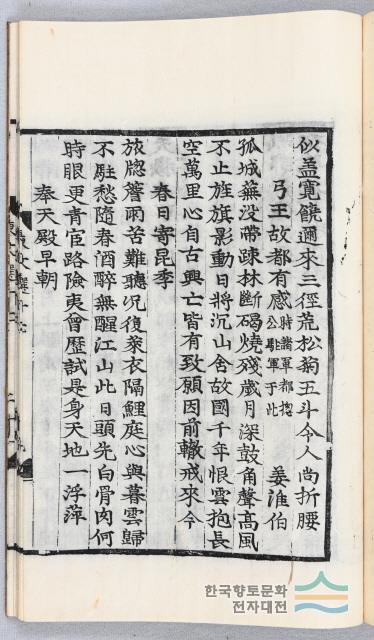 似孟寬饒邇來三徑荒松菊五斗今人尙折腰
弓王故都有感 時諸軍都摠公駐軍于此 姜淮伯
孤城蕪没帶疎林斷碣燒殘歲月深鼓角聲高風
不止旌旗影動日將沉山含故國千年恨雲抱長
空萬里心自古興亡皆有致願因前轍戒來今
春日寄昆季
旅牕簷雨苦難聽况復萊衣隔鯉庭心與暮雲歸
不駐愁隨春酒醉無醒江山此日頭先白骨肉何
時眼更靑宦路險夷曾歷試是身天地一浮萍
奉天殿早朝
한국향토문화
전자대전